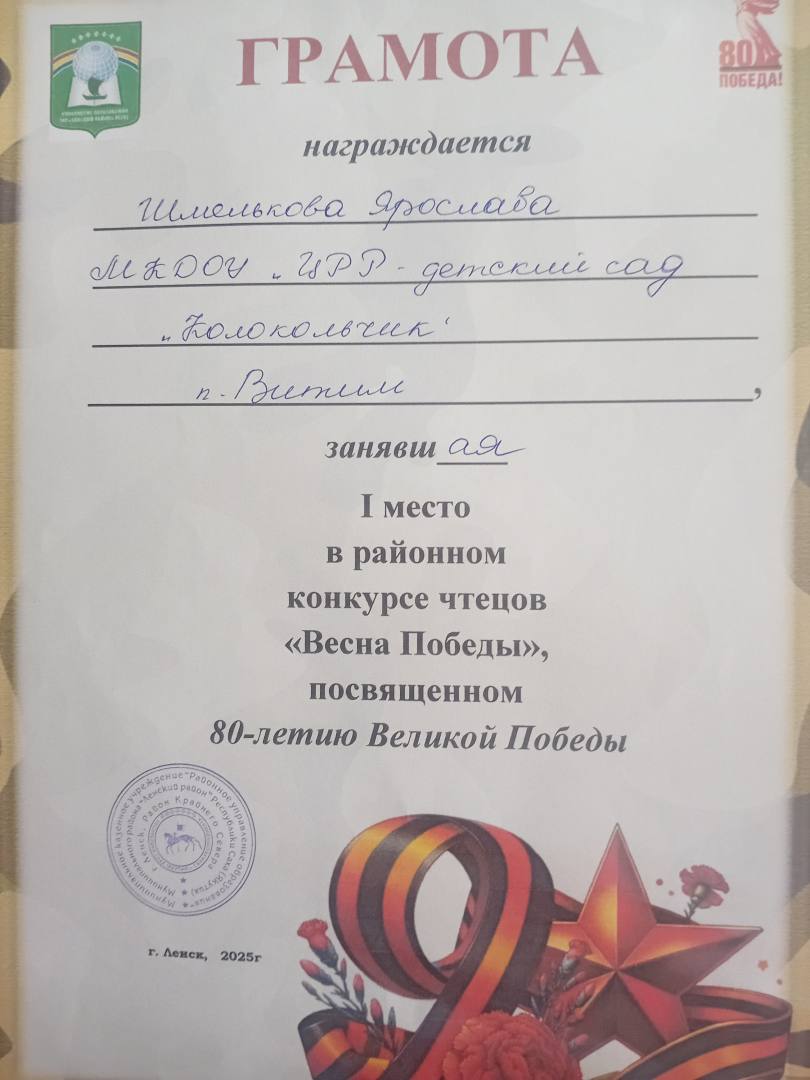 ГРАМОТА
80
ПОБЕДА!
награждается
Шмелькова Ярослава
МКДОУ „ЦРР - детский сад
„Колокольчик"
п. Витим
,
занявш ая
I место
в районном
конкурсе чтецов
«Весна Победы»,
посвященном
80-летию Великой Победы
Муниципальное казенное учреждение "Районное управление образования"
Муниципального района "Ленский район" Республики Саха (Якутия)
г. Ленск, Район Крайнего Севера
г. Ленск, 2025г